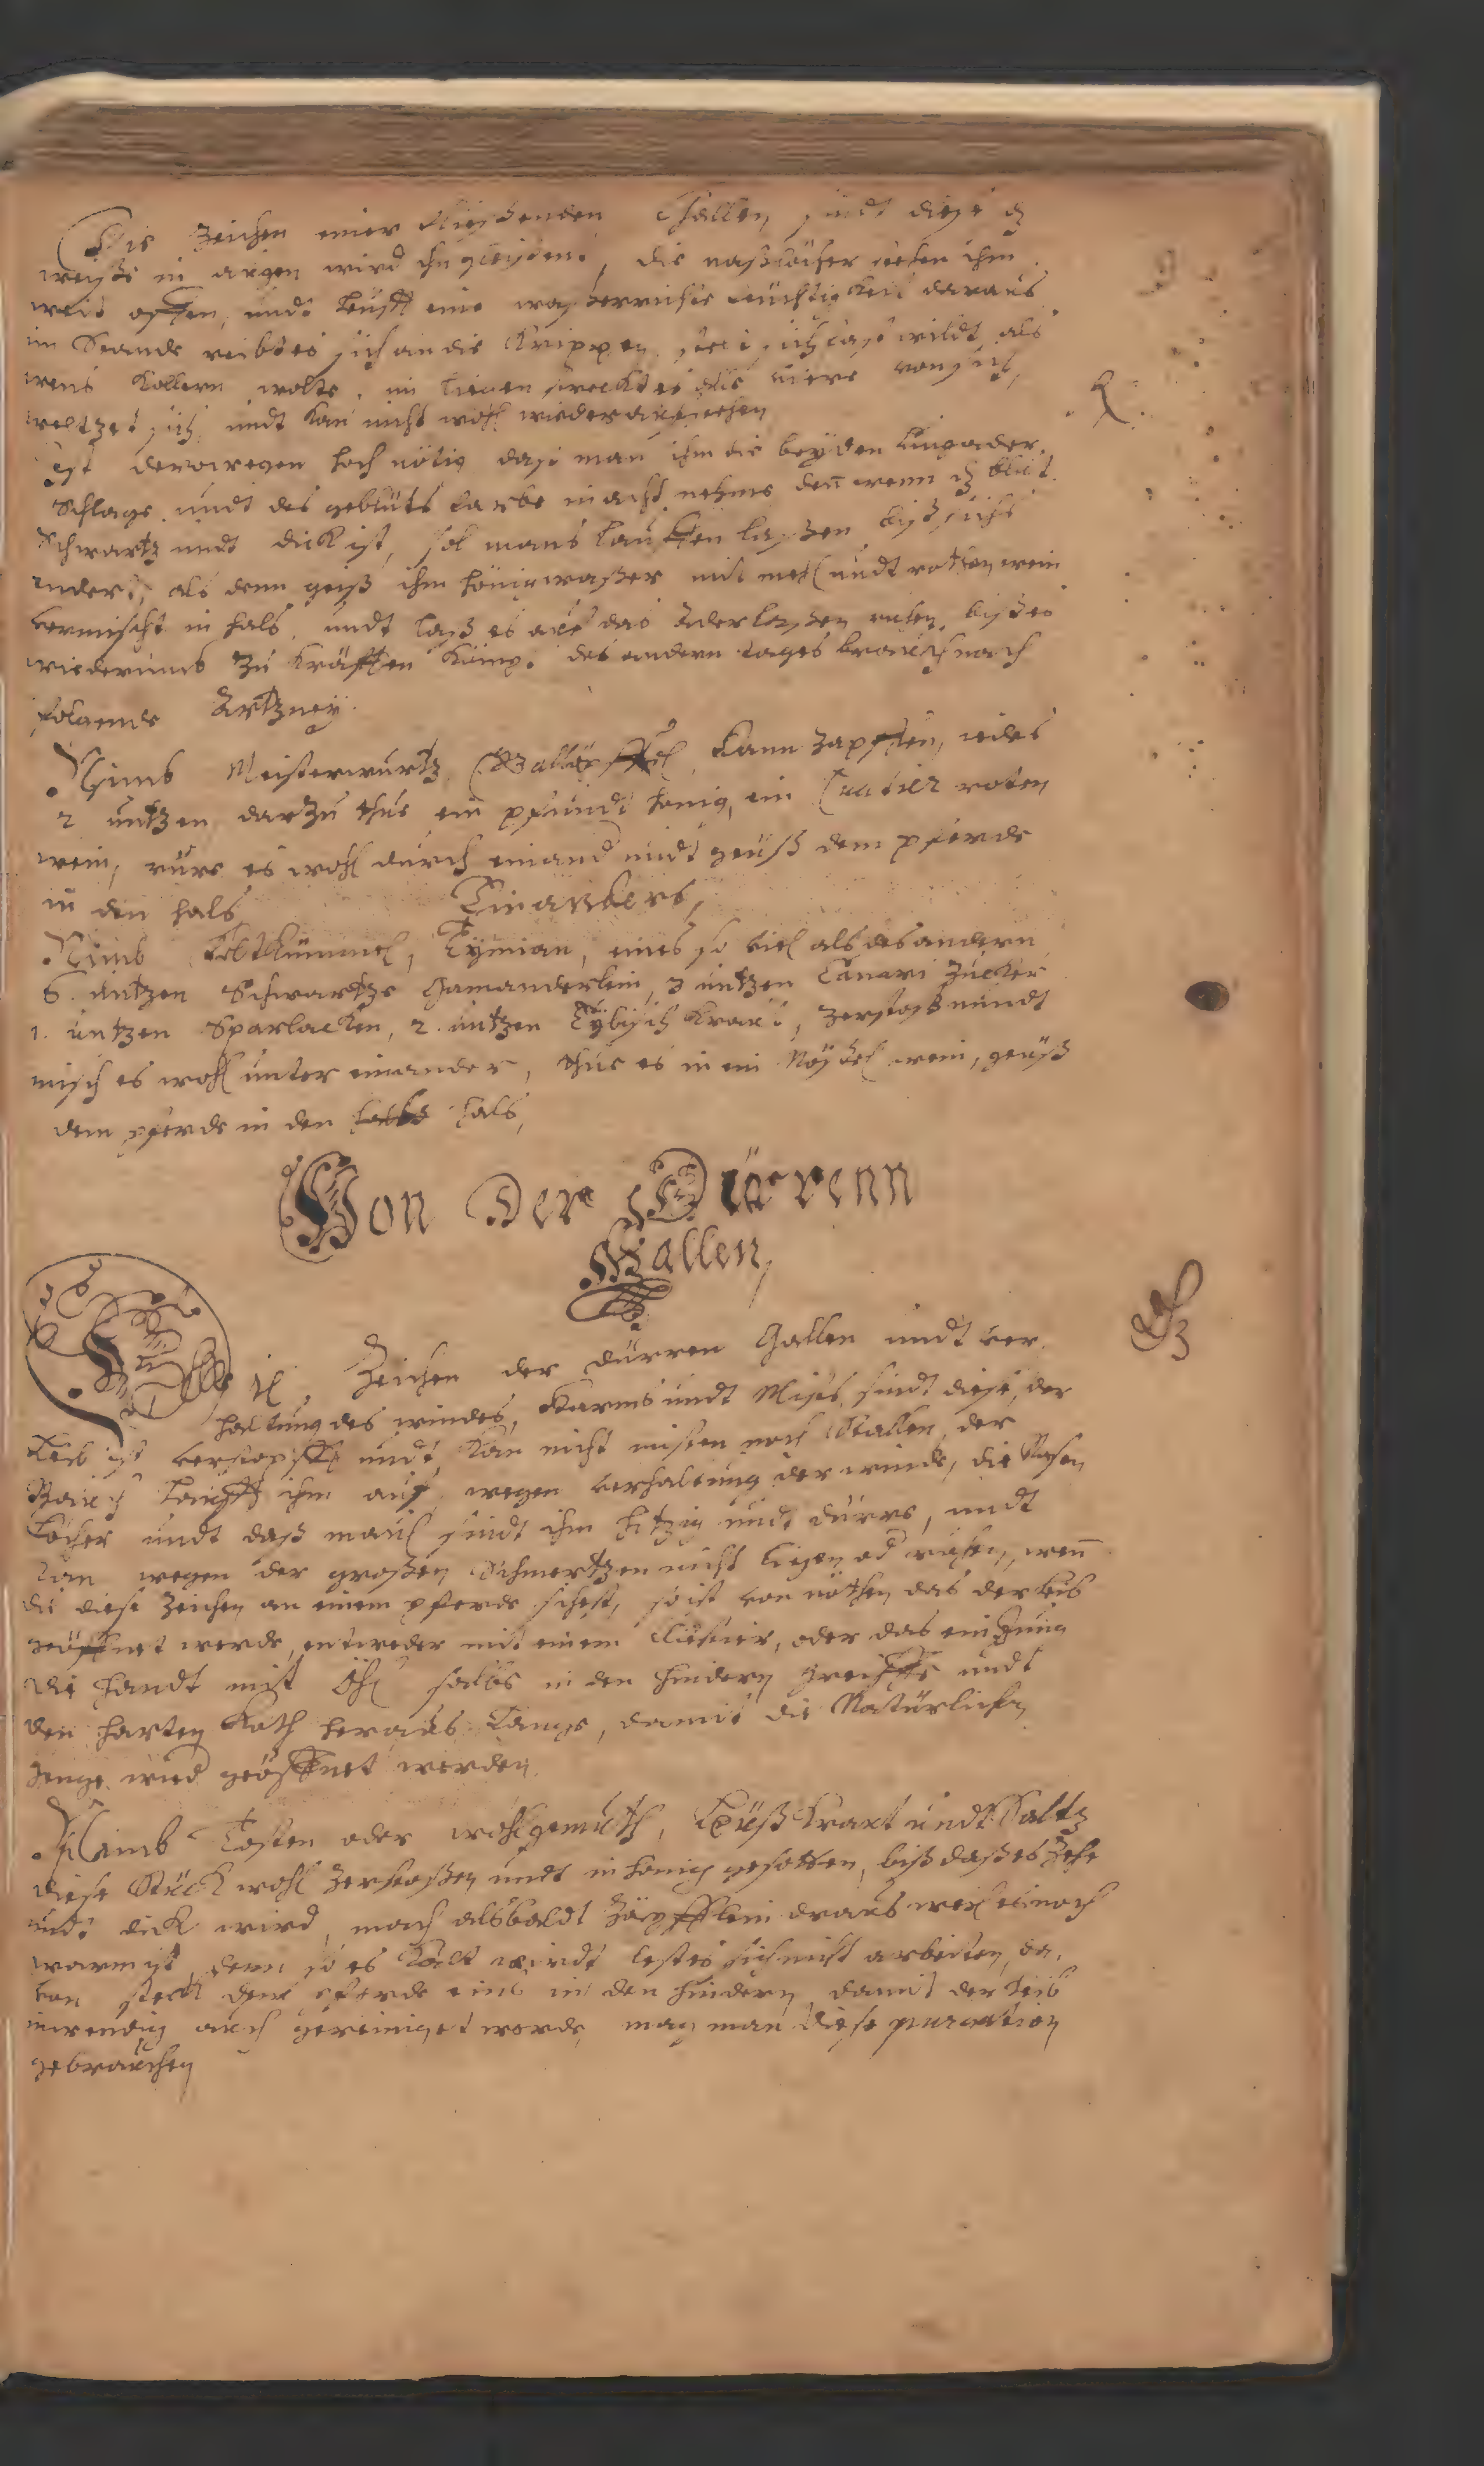 Die Zeichen einer fliessenden Gallen sindt diese dz
weisse in augen wird ihn gleissent, die naßlöcher stehen ihm
weit offen, undt leufft eine wasserreiche feuchtigkeit daraus
im Stande reibt es sich an die Krippen, stelt sich fast wildt, als
wens Kollern wolte, im liegen strecktes alle viere von sich,
weltzet sich, undt kan nicht wohl wieder auffstehen
Ist derowegen hoch nötig dass man ihm die beyden lungader
Schlage, undt des gebluts farbe in acht nehme den wenn dz blut
Schwartz undt dick ist, sol mans lauffen lassen biß sichs
endert, als denn geiß ihm hönigwasser mit mehl undt rothen wein
vermischt in hals, undt laß es auf das Aderlassen ruhen, biß es
wiederumb zu kräfften kömp. des andern tages brauch nach
folgende Artzney.
Nimb Meisterwurtz, Galläpffel, Tannzapffen, iedes
2 untzen darzu thue ein pfundt honig, ein roten
wein, rure es wohl durch einand undt geuß dem pferde
in den hals Ein anders,
Nimb feltkümmel, Tymian, eines so viel als des andern
6. untzen Schwartze Gamanderlein, 3 untzen Canari Zucker
1. untzen Sparlacken, 2. untzen Eybisch kraut, zerstoß undt
misch es wohl unter einander, thue es in ein Nöyssel wein, geuß
dem pferde in den hals,
Von Der Dürrenn
Gallen,
Zeichen der dürren Gallen undt ver
haltung des windes, Harms undt Mists, sindt diese, der
Leib ist verstopfft undt kan nicht misten noch Stallen, der
Bauch laufft ihm auf, wegen verhaltung der winde, die Nasen
Löcher undt daß maul sindt ihm hitzig undt dürre, undt
kan wegen der grossen Schmertzen nicht ligen od ruhen, wen
du diese Zeichen an einem pferde sihest, so ist von nöthen das der leib
geöffnet werde, entweder mit einem Clistier, oder das ein Jung
die handt mit Öhl salbe in den hindern greiffe undt
den harten Koth heraus lange, damit die Natürlichen
genge wied geöffnet werden.
Nimb Tosten oder wohlgemuth, kraut undt Saltz
diese Stück wohl zerstossen undt in honig gesotten, biß daß es Zehe
undt dick wird, mach alsbaldt Zäpfflein draus weil es noch
warm ist, denn so es kalt wirdt lestes sich nicht arbeiten, da,
von steck dem pferde eins in den hindern, damit der leib
inwendig auch gereiniget werde, mag man diese purgation
gebrauchen